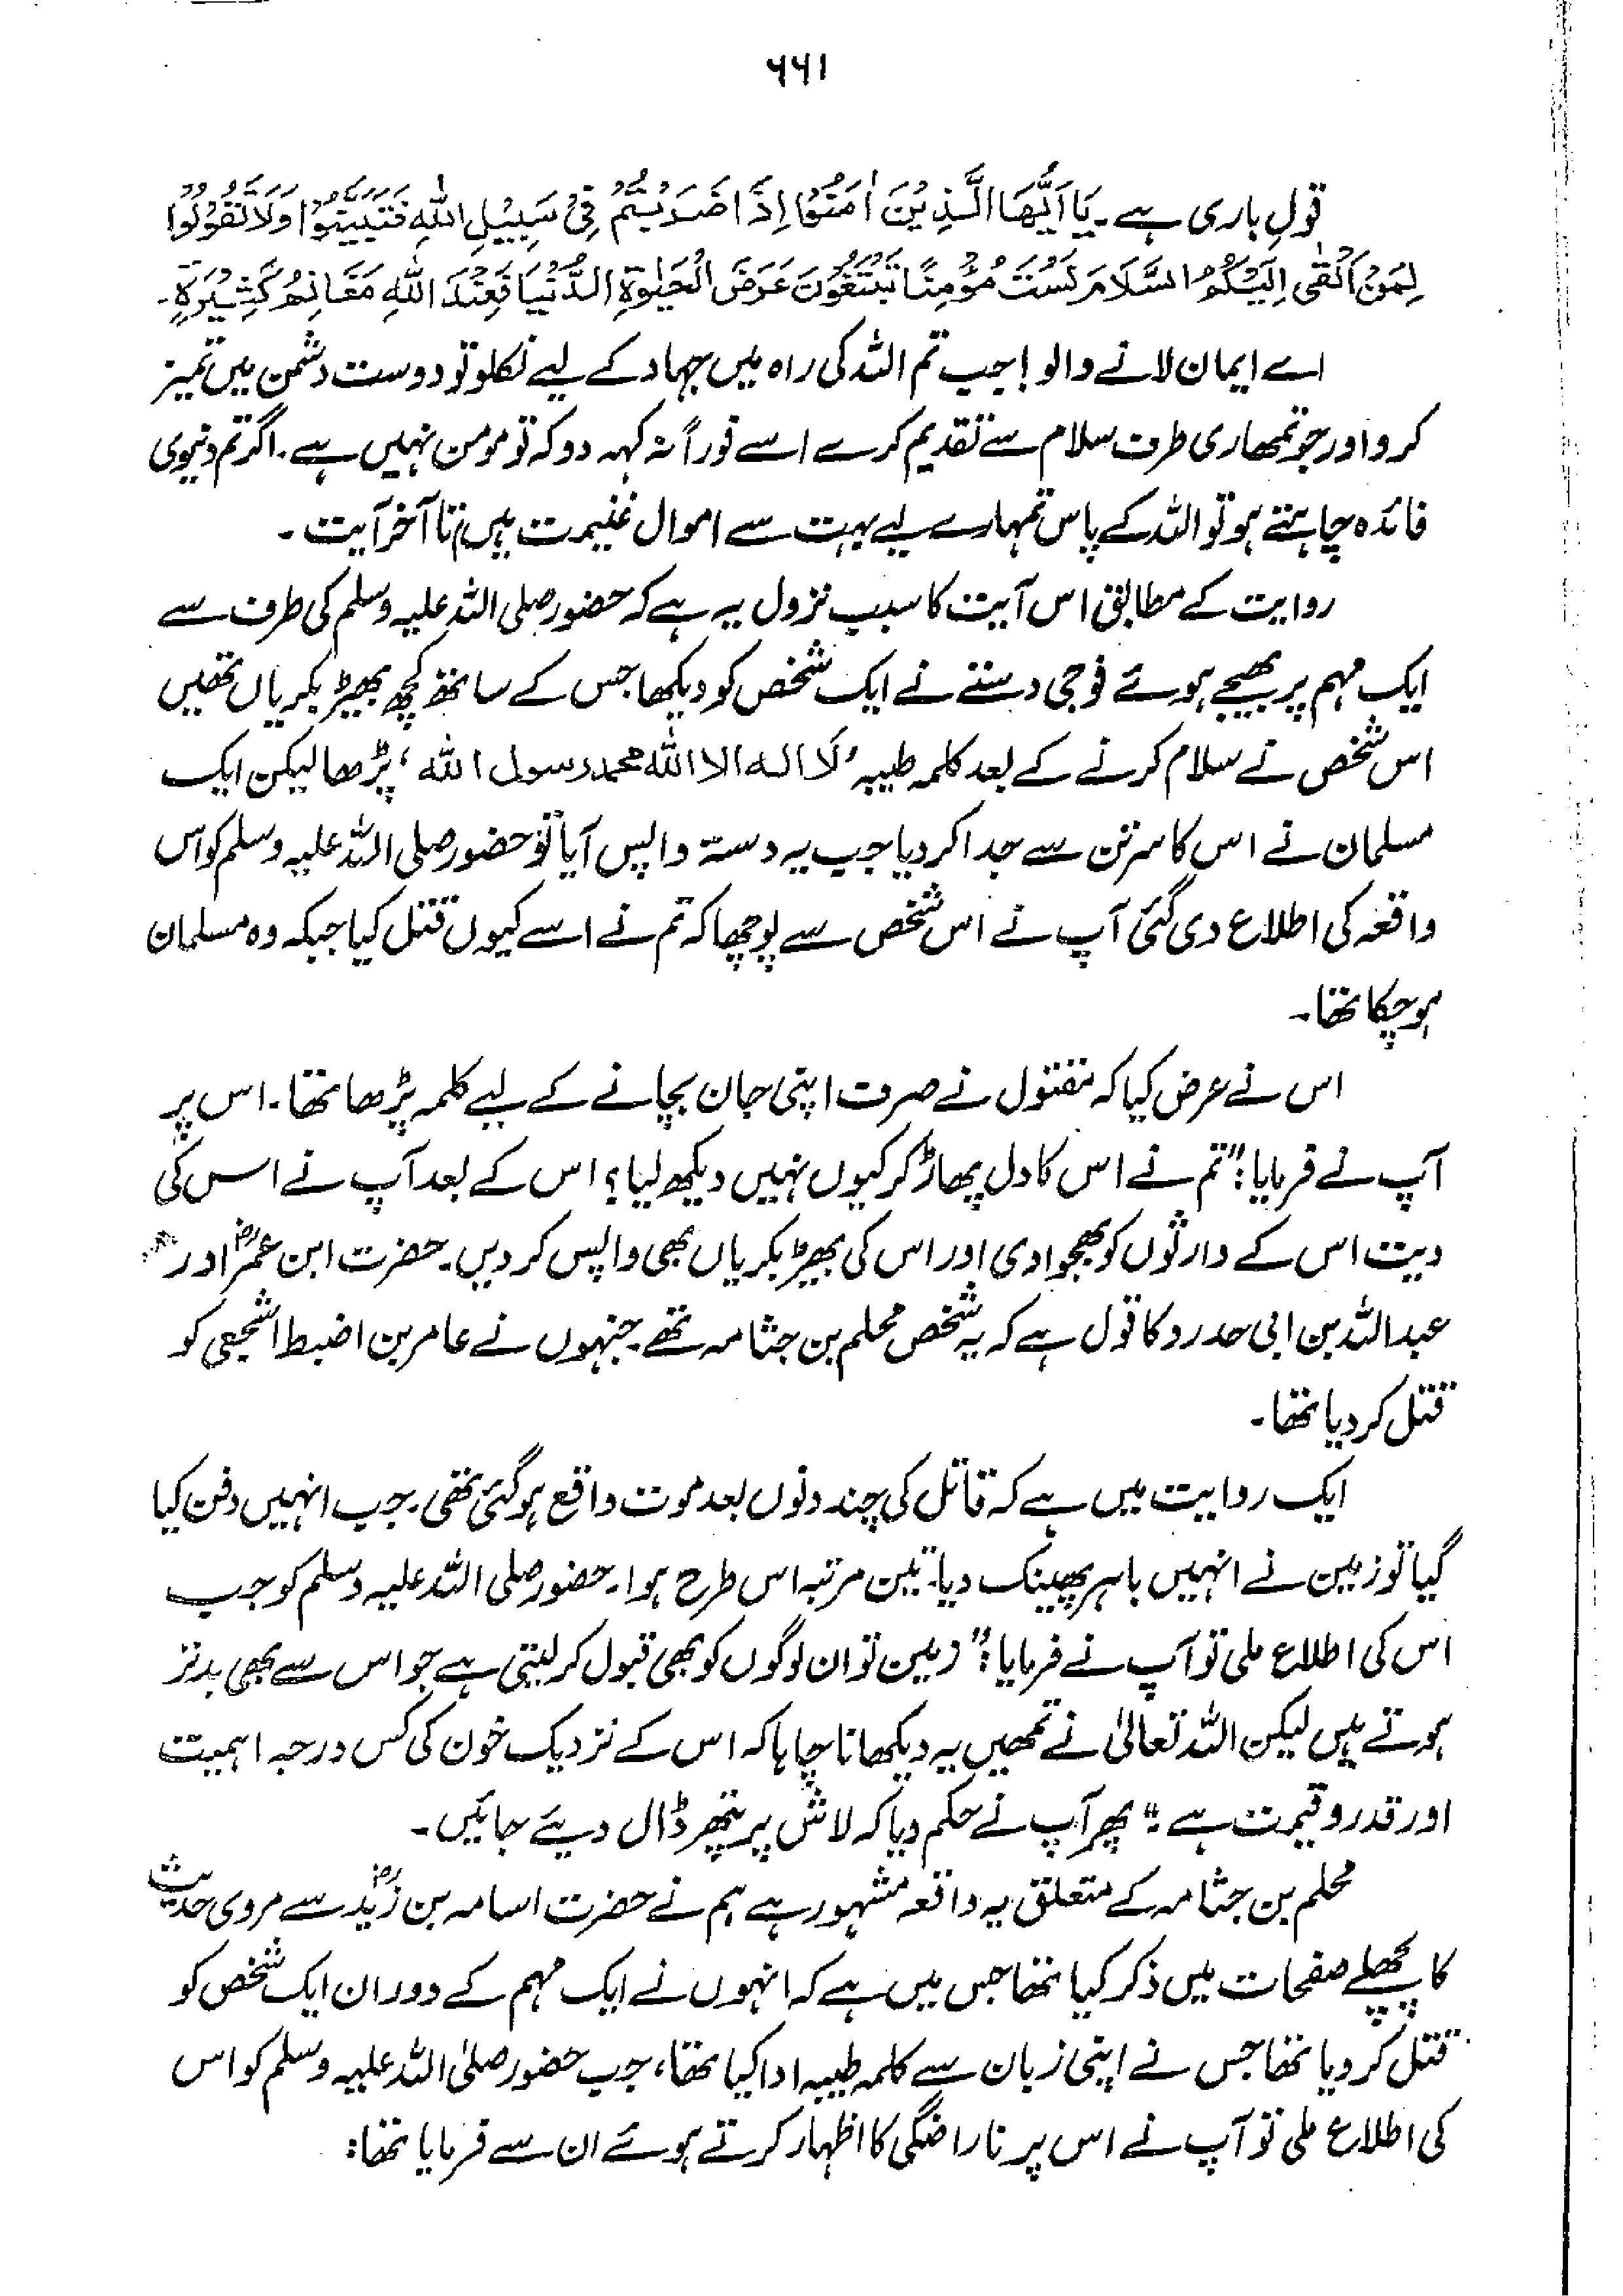 ۶۶۱
قولِ باری ہے۔ يَا اَيُّهَا الَّذِيْنَ اٰمَنُوْا اِذَا ضَرَبْتُمْ فِيْ سَبِيْلِ اللهِ فَتَبَيَّنُوْا وَلَا تَقُوْلُوْا
لِمَنْ اَلْقٰى اِلَيْكُمُ السَّلَامَ لَسْتَ مُؤْمِنًا تَبْتَغُوْنَ عَرَضَ الْحَيٰوةِ الدُّنْيَا فَعِنْدَ اللهِ مَغَانِمُ كَثِيْرَةٌ۔
اے ایمان لانے والو! جب تم اللہ کی راہ میں جہاد کے لیے نکلو تو دوست دشمن میں تمیز
کرو اور جو تمھاری طرف سلام سے تقدیم کرے اسے فوراً نہ کہہ دو کہ تو مومن نہیں ہے۔ اگر تم دنیوی
فائدہ چاہتے ہو تو اللہ کے پاس تمہارے لیے بہت سے اموال غنیمت ہیں) تا آخر آیت۔
روایت کے مطابق اس آیت کا سبب نزول یہ ہے کہ حضور صلی اللہ علیہ وسلم کی طرف سے
ایک مہم پر بھیجے ہوئے فوجی دستے نے ایک شخص کو دیکھا جس کے ساتھ کچھ بھیڑ بکریاں تھیں
اس شخص نے سلام کرنے کے بعد کلمہ طیبہ ’لا الہ الا اللہ محمد رسول اللہ‘ پڑھا لیکن ایک
مسلمان نے اس کا سر تن سے جدا کر دیا جب یہ دستہ واپس آیا تو حضور صلی اللہ علیہ وسلم کو اس
واقعہ کی اطلاع دی گئی آپ نے اس شخص سے پوچھا کہ تم نے اسے کیوں قتل کیا جبکہ وہ مسلمان
ہو چکا تھا۔
اس نے عرض کیا کہ مقتول نے صرف اپنی جان بچانے کے لیے کلمہ پڑھا تھا۔ اس پر
آپ نے فرمایا: "تم نے اس کا دل پھاڑ کر کیوں نہیں دیکھ لیا؟ اس کے بعد آپ نے اس کی
دیت اس کے وارثوں کو بھجوا دی اور اس کی بھیڑ بکریاں بھی واپس کر دیں۔ حضرت ابن عمرؓ اور
عبداللہ بن ابی حدرد کا قول ہے کہ یہ شخص محلم بن جثامہ تھے۔ جنہوں نے عامر بن اضبط اشجعی کو
قتل کر دیا تھا۔
ایک روایت میں ہے کہ قاتل کی چند دنوں بعد موت واقع ہو گئی تھی۔ جب انہیں دفن کیا
گیا تو زمین نے انہیں باہر پھینک دیا۔ تین مرتبہ اس طرح ہوا۔ حضور صلی اللہ علیہ وسلم کو جب
اس کی اطلاع ملی تو آپ نے فرمایا: "زمین تو ان لوگوں کو بھی قبول کر لیتی ہے جو اس سے بھی بدتر
ہوتے ہیں لیکن اللہ تعالیٰ نے تمھیں یہ دیکھانا چاہا کہ اس کے نزدیک خون کی کس درجہ اہمیت
اور قدر و قیمت ہے" پھر آپ نے حکم دیا کہ لاش پر پتھر ڈال دیئے جائیں۔
محلم بن جثامہ کے متعلق یہ واقعہ مشہور ہے ہم نے حضرت اسامہ بن زیدؓ سے مروی حدیث
کا پچھلے صفحات میں ذکر کیا تھا جس میں ہے کہ انہوں نے ایک مہم کے دوران ایک شخص کو
قتل کر دیا تھا جس نے اپنی زبان سے کلمہ طیبہ ادا کیا تھا، جب حضور صلی اللہ علیہ وسلم کو اس
کی اطلاع ملی تو آپ نے اس پر ناراضگی کا اظہار کرتے ہوئے ان سے فرمایا تھا: